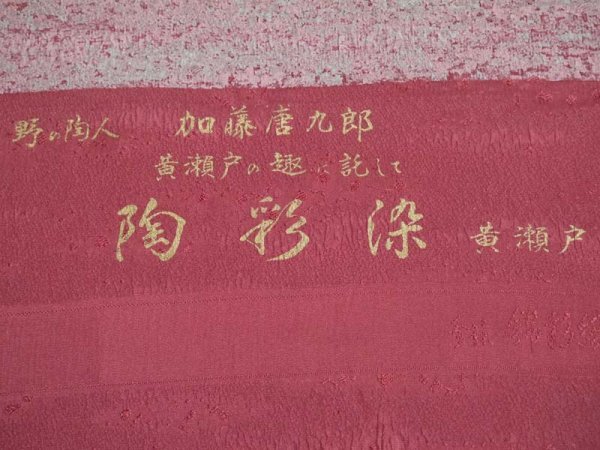 野の陶人 加藤唐九郎
黄瀬戸の趣に託して
陶彩染 黄瀬戸